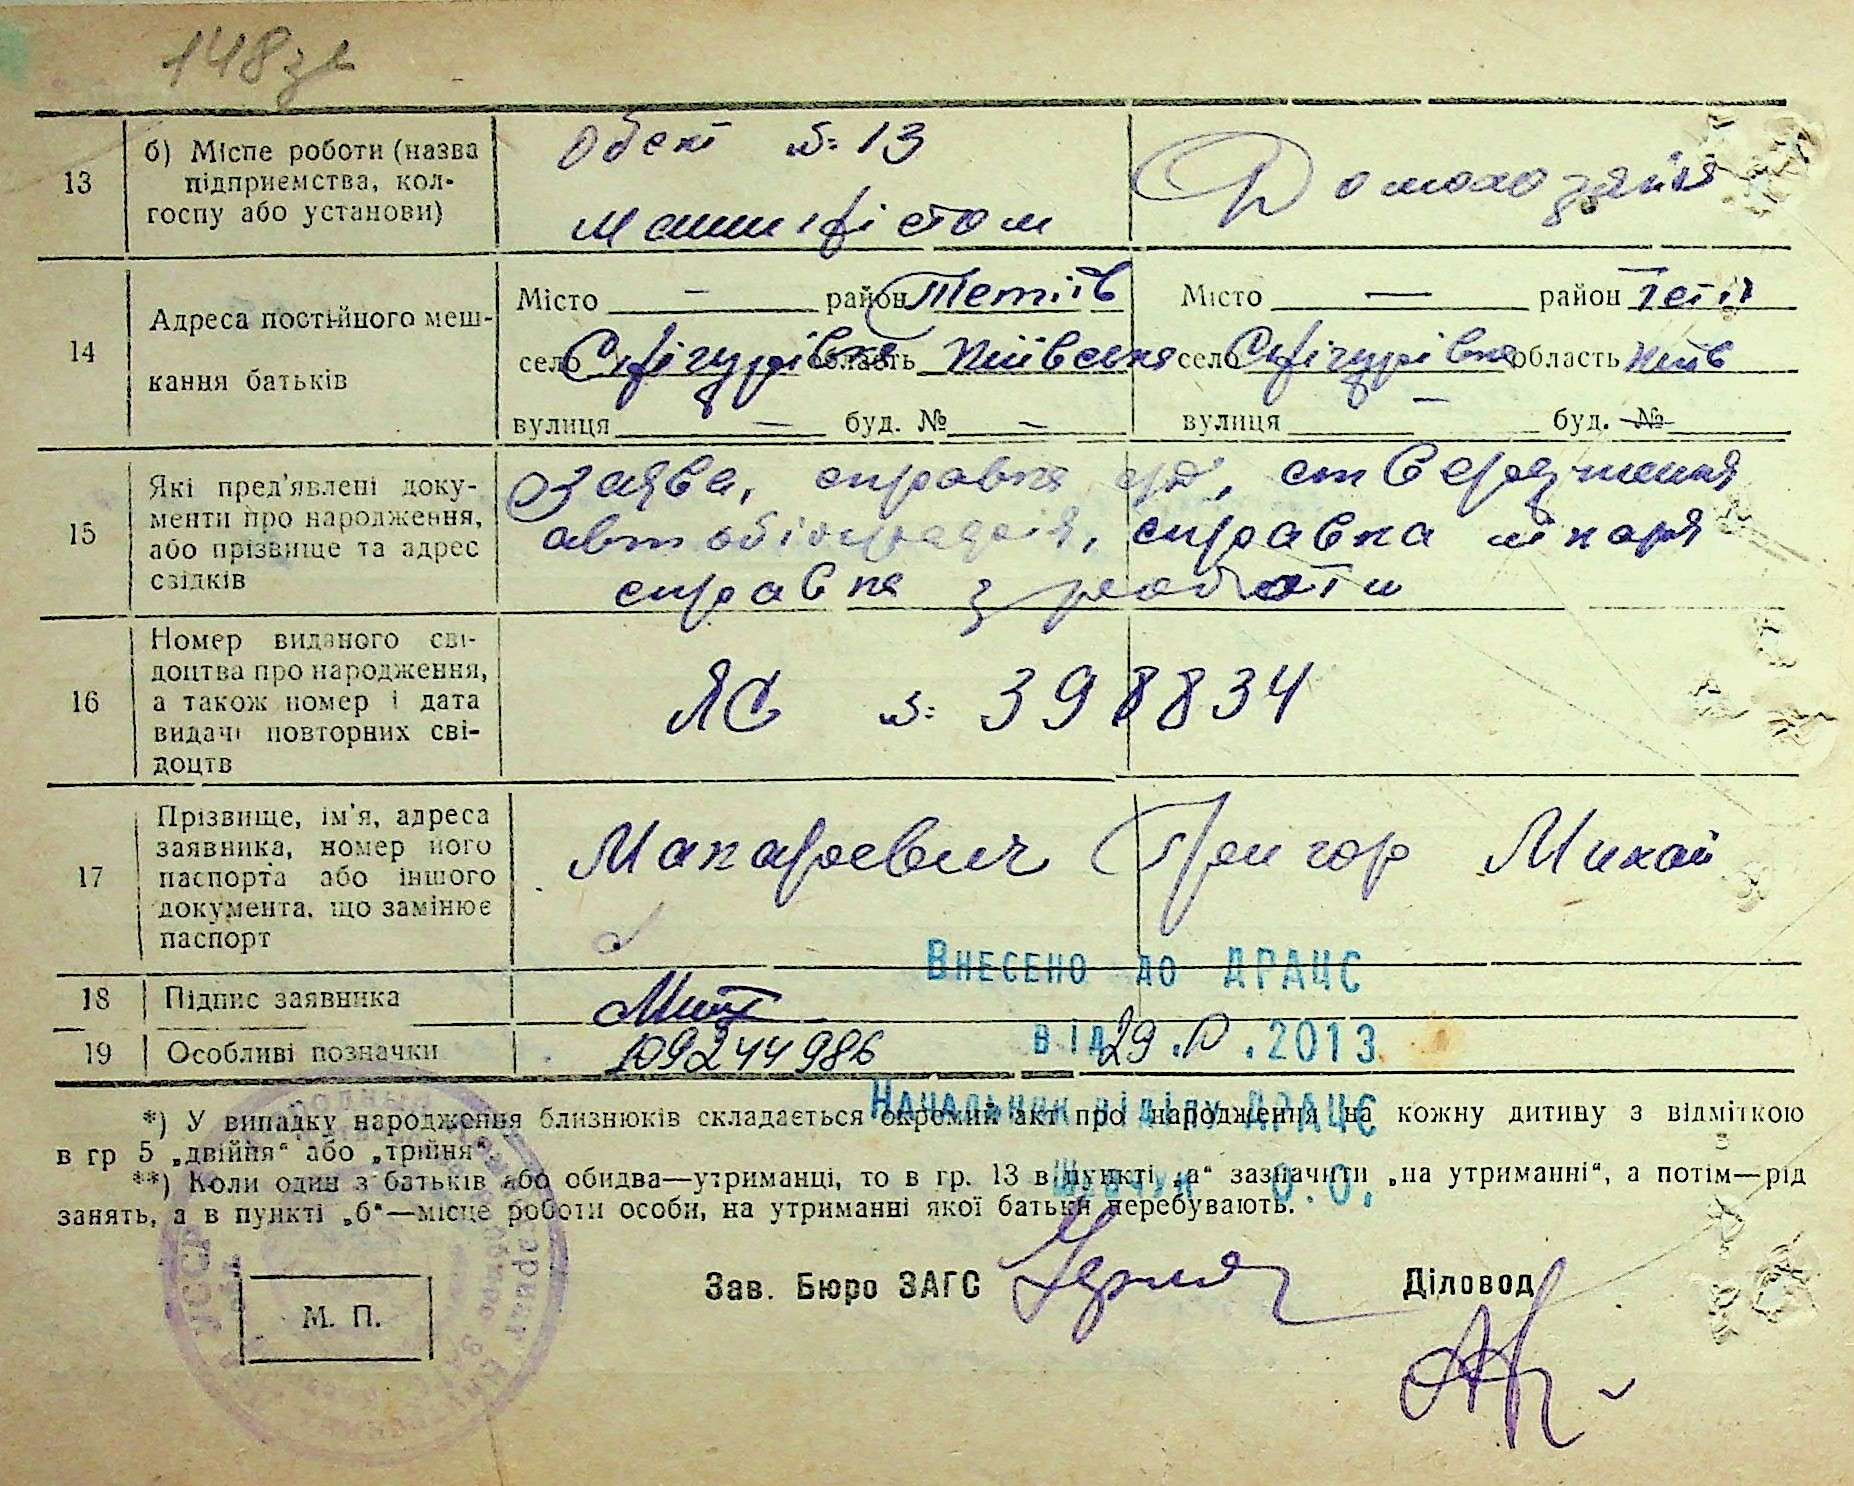 148зв
13
б) Місце роботи (назва
підприємства, кол-
госпу або установи)
Обєкт №: 13
машиністом
Домохозяйка
14
Адреса постійного меш-
кання батьків
Місто — район Тетіїв
село Скібінцівка область Київська
вулиця — буд. № —
Місто — район Тетіїв
село область Київ
вулиця — буд. №
15
Які пред'явлені доку-
менти про народження,
або прізвище та адрес
свідків
Заява, справка ствердження
автобіографія, справка лікаря
справка з роботи
16
Номер виданого сві-
доцтва про народження,
а також номер і дата
видачі повторних сві-
доцтв
ЯС №: 398834
17
Прізвище, ім'я, адреса
заявника, номер його
паспорта або іншого
документа, що замінює
паспорт
Макаревич Григор Михай
Внесено до ДРАЦС
18
Підпис заявника
19
Особливі позначки
109244986
від 29.10.2013
Начальник відділу ДРАЦС
*) У випадку народження близнюків складається окремий акт про народження на кожну дитину з відміткою
в гр 5 „двійня“ або „трійня“
**) Коли один з батьків або обидва—утриманці, то в гр. 13 в пункті „а“ зазначити „на утриманні“, а потім—рід
занять, а в пункті „б“—місце роботи особи, на утриманні якої батьки перебувають.
Шевчук О.О.
Зав. Бюро ЗАГС
Діловод
М. П.